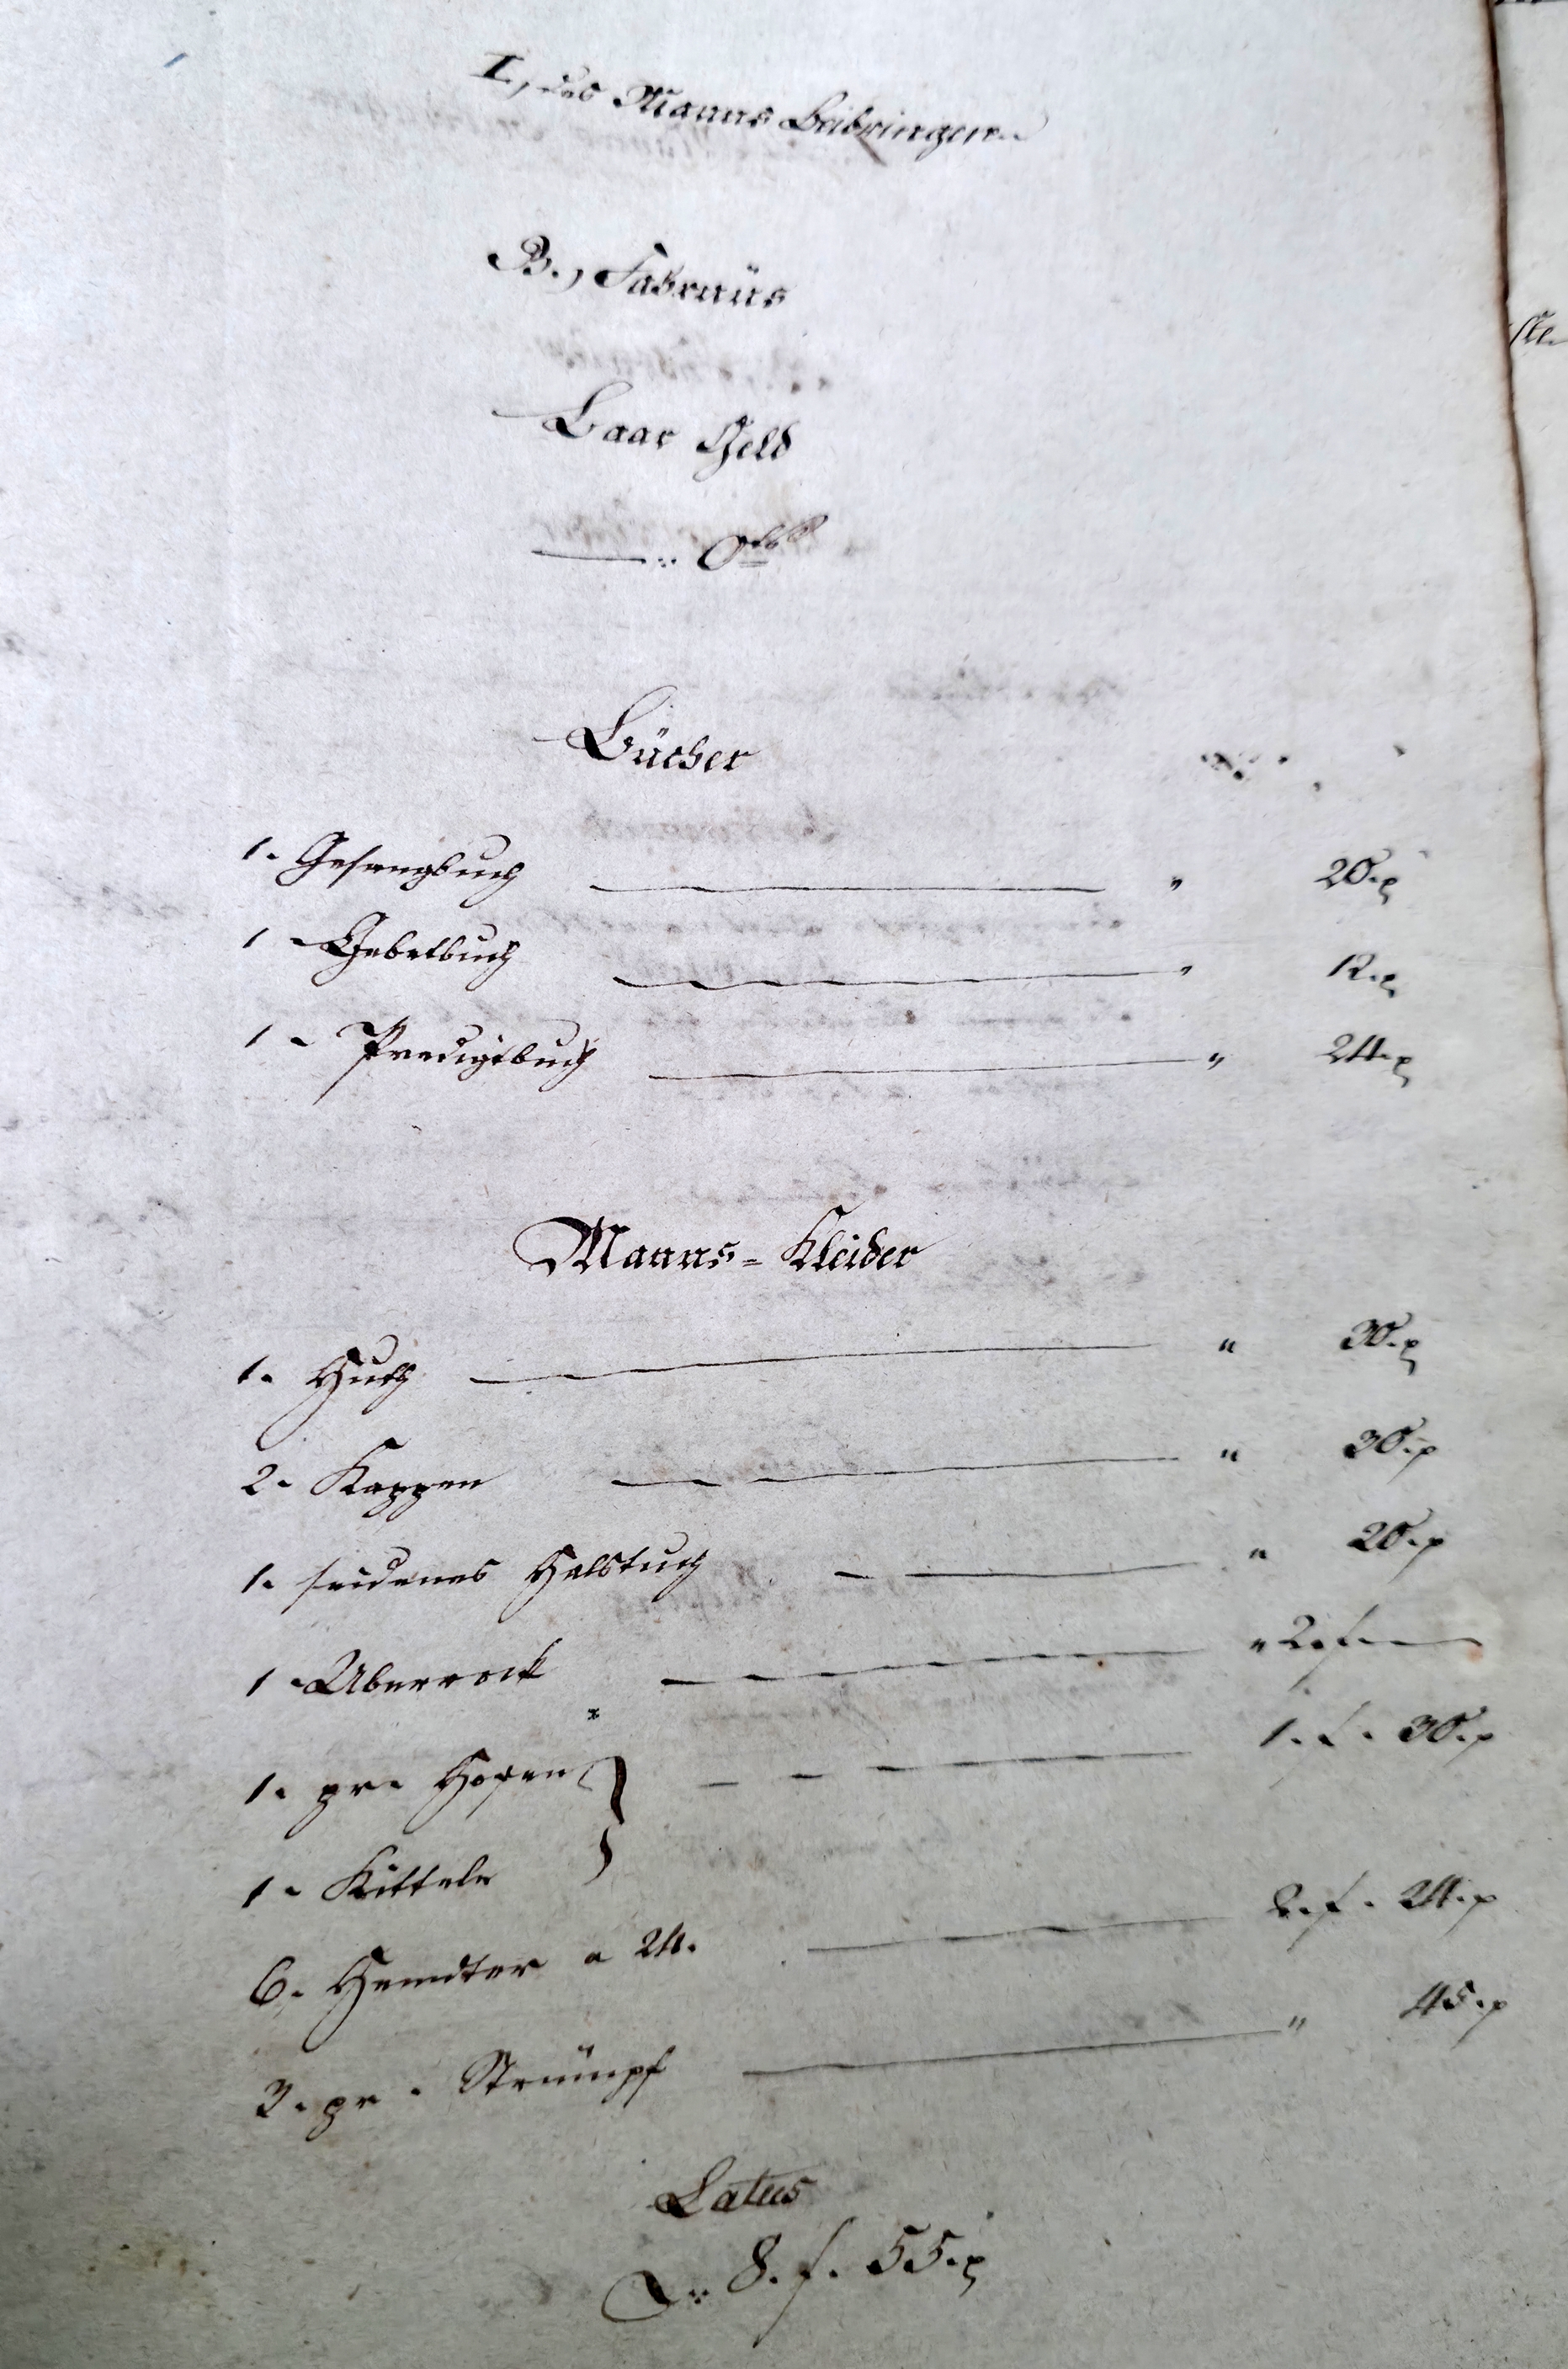 I, des Manns Beibringen.
B., Fahrnüs
Baar Geld
Bücher
1. Gesangbuch — " 20. x
1 Gebetbuch — " 12. x
1 - Predigtbuch — " 24. x
Manns = Kleider
1. Huth — " 30. x
2. Kappen — " 30. x
1. seidenes Halstuch — " 20. x
1 Uberrock — " 2. f. —
1. pr. Hosen } — 1. f. 30. x
1. Kittele
6. Hemdter a 24. — 2. f. 24. x
3. pr. Strümpf — " 45. x
Latus
8. f. 55. x